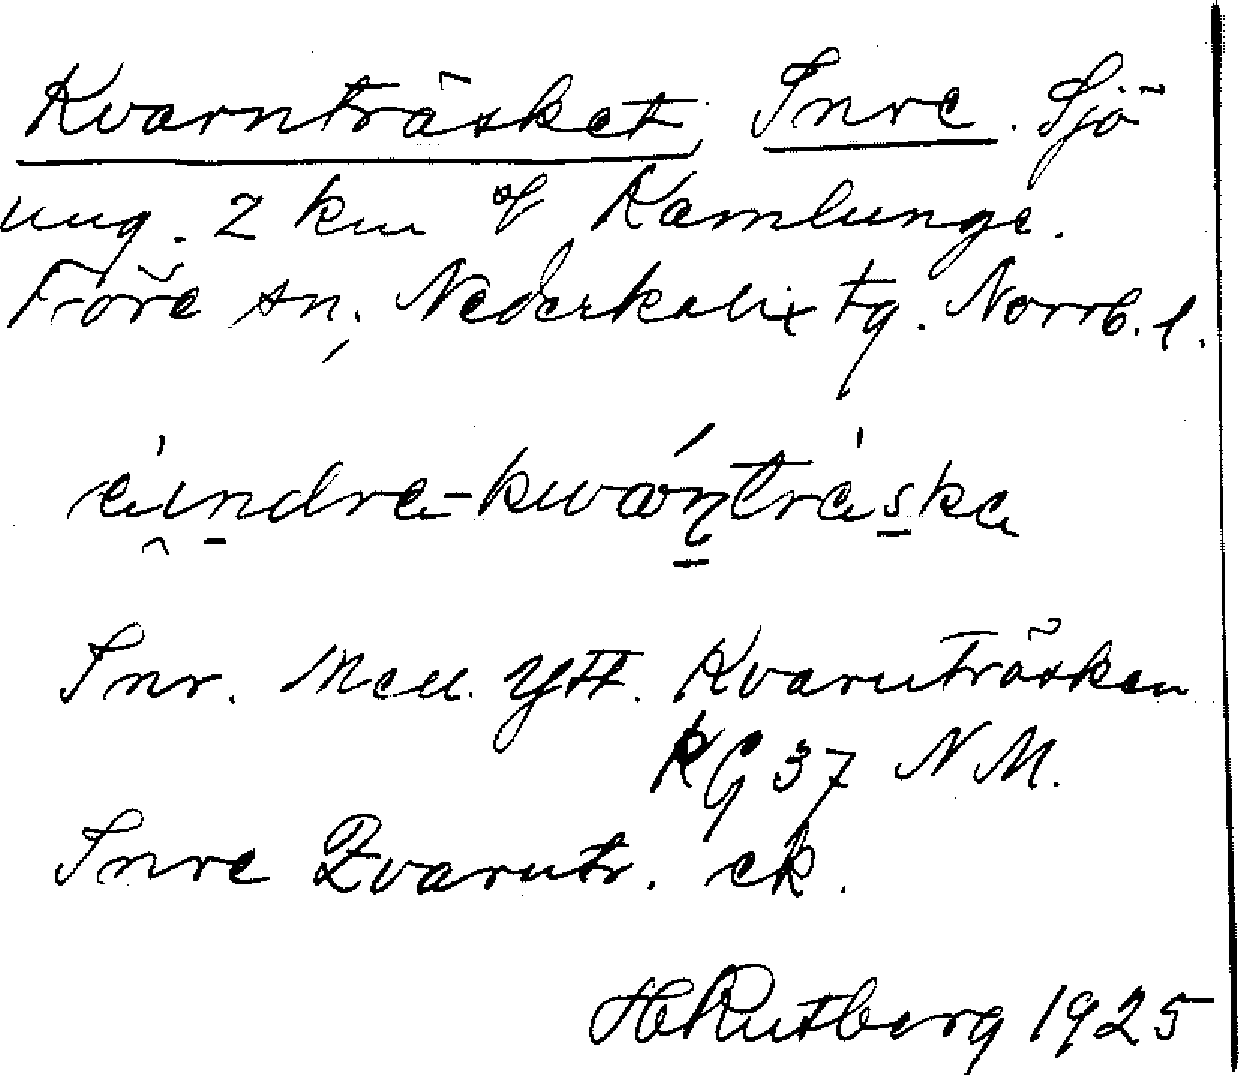 Kvarnträsket, Inre. Sjö
ung. 2 km Kamlunge.
Töre sn, Nederkalix tg. Norrb. l.
Inr. Mell. Ytt. Kvarnträsken
KG 37 NM.
Inre Qvarntr. ek.
H Rutberg 1925